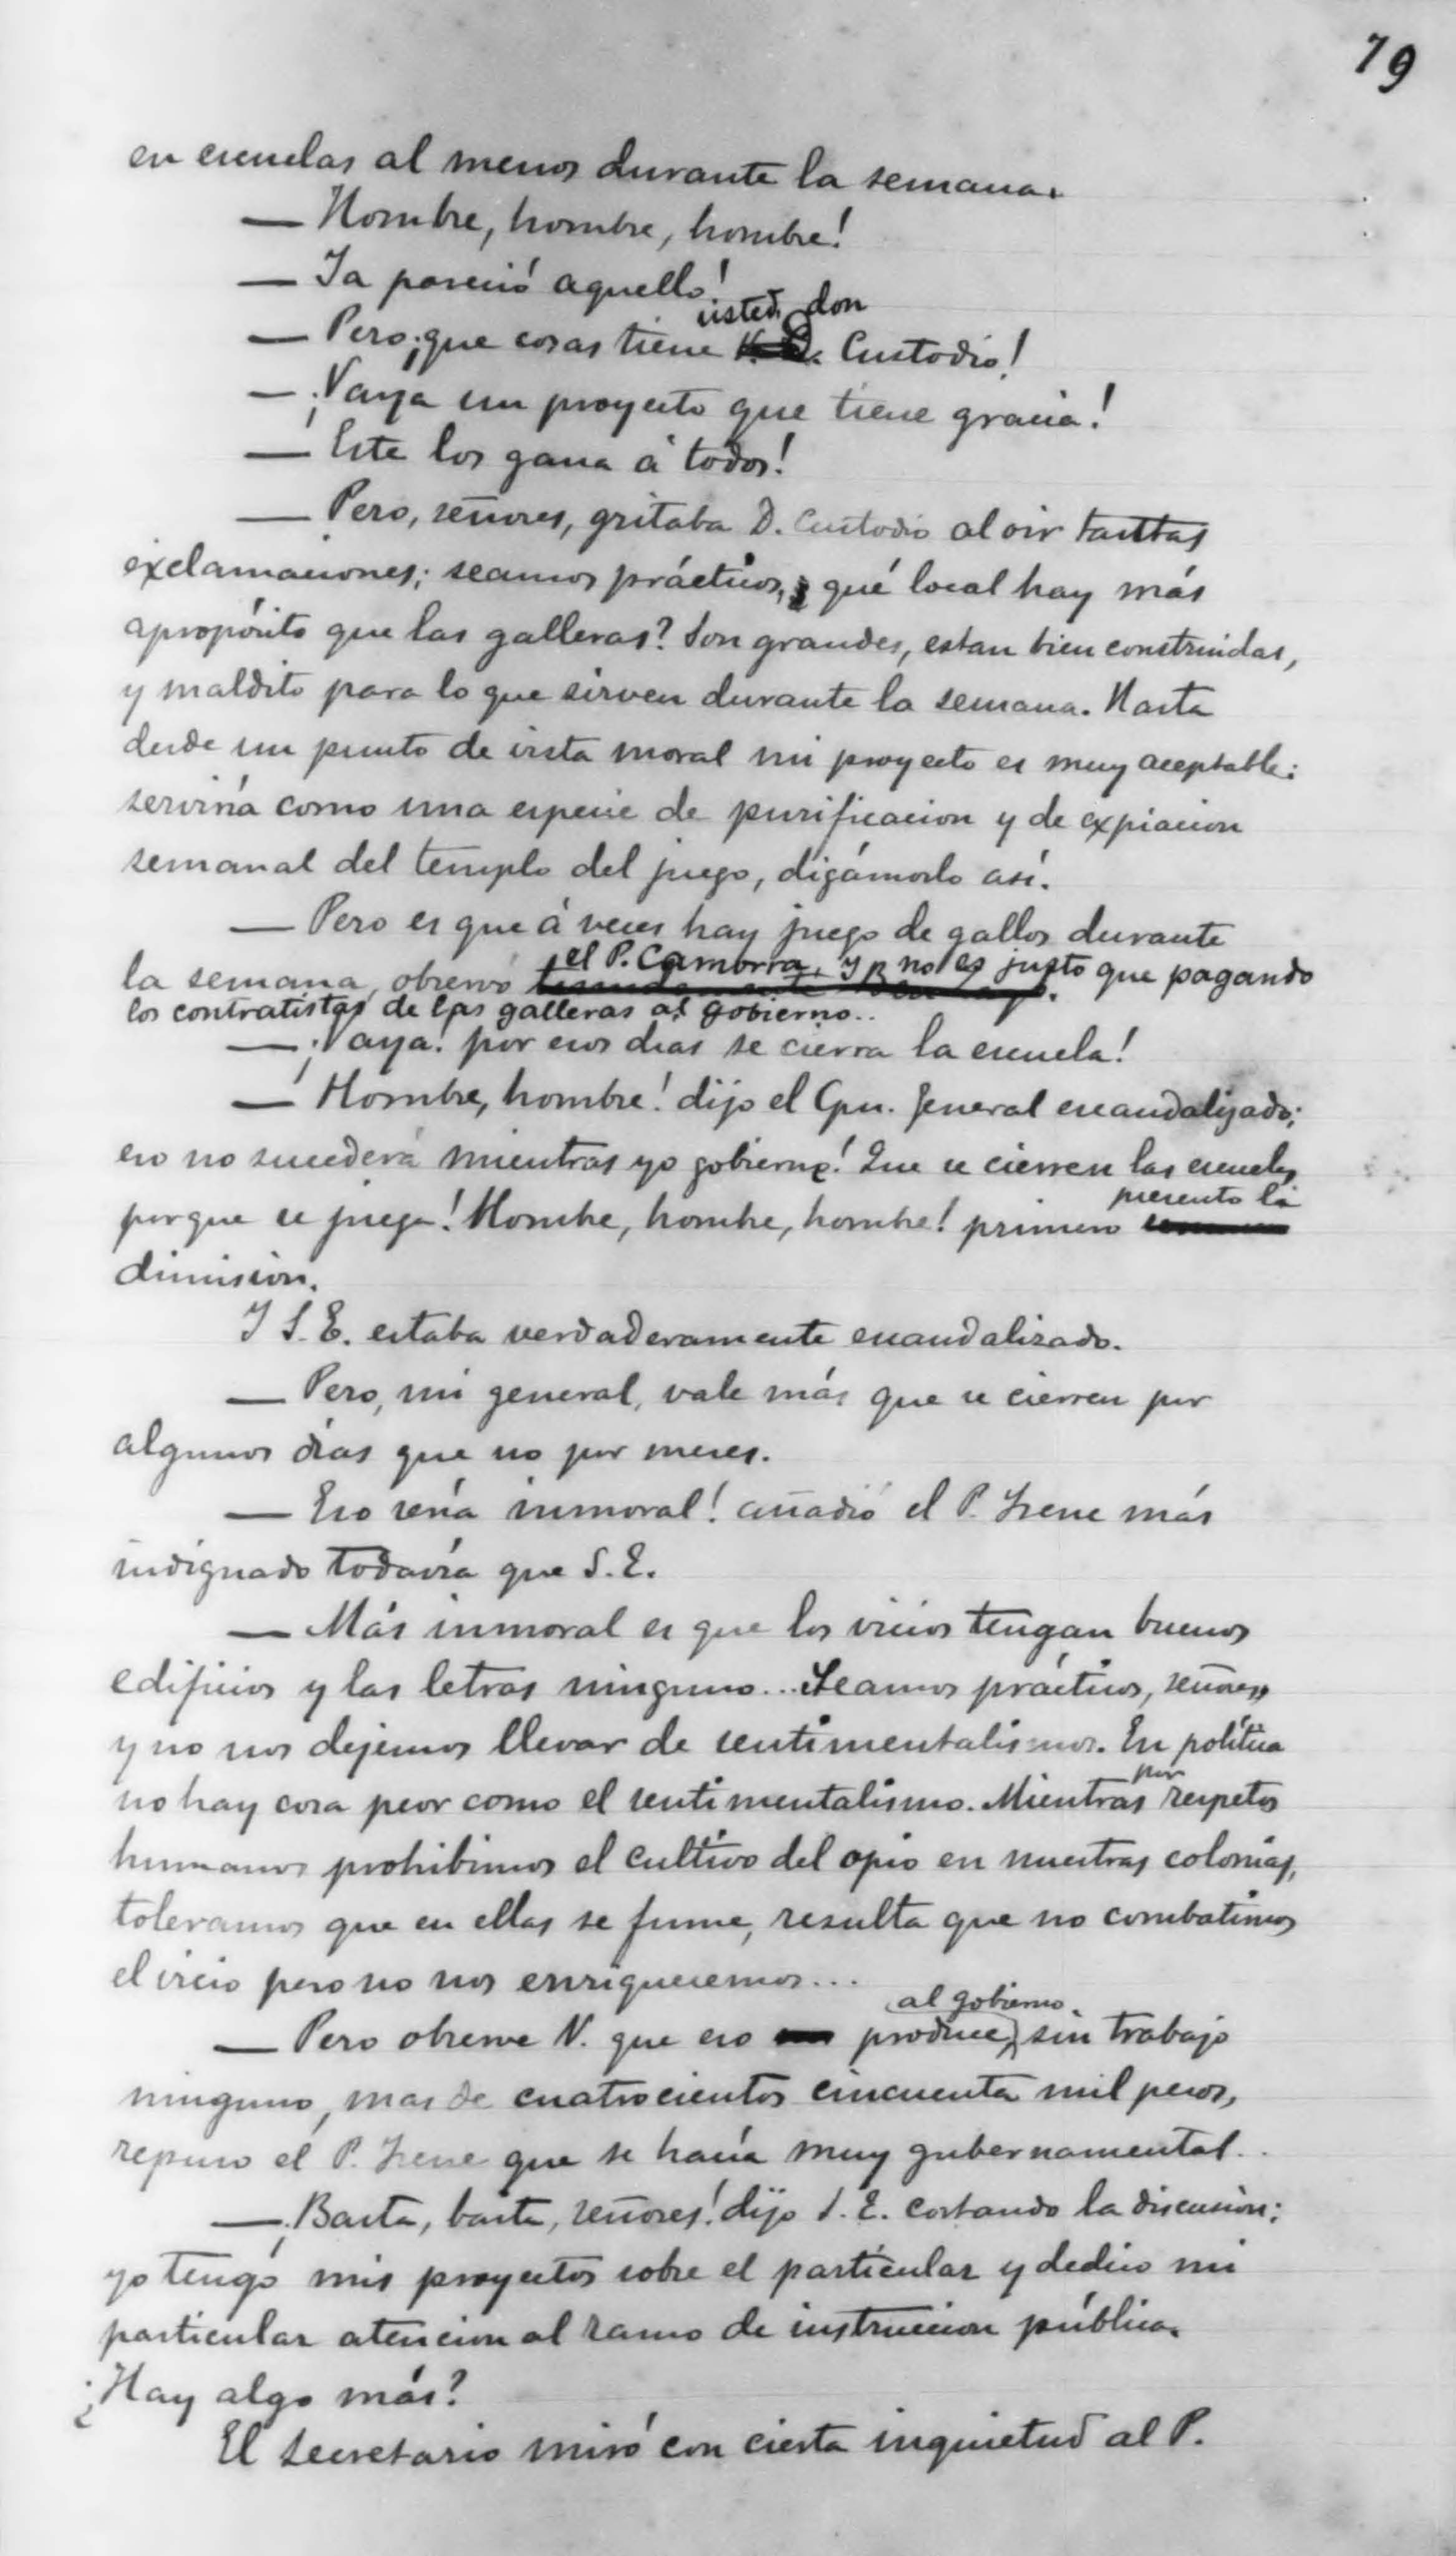 79
en escuelas al menos durante la semana.
— Hombre, hombre, hombre!
— Ya pareció aquello!
usted, don
— Pero ¡que cosas tiene V. D. Custodio!
— ¡Vaya un proyecto que tiene gracia!
— Este los gana á todos!
— Pero, señores, gritaba D. Custodio al oir tantas
exclamaciones; seamos prácticos, ¿qué local hay más
apropósito que las galleras? Son grandes, estan bien construidas,
y maldito para lo que sirven durante la semana. Hasta
desde un punto de vista moral mi proyecto es muy aceptable:
serviría como una especie de purificacion y de expiacion
semanal del templo del juego, digámoslo así.
— Pero es que á veces hay juego de gallos durante
la semana, observó el P. Camorra, y no es justo que pagando
los contratistas de las galleras al gobierno..
— ¡Vaya! por esos dias se cierra la escuela!
— Hombre, hombre! dijo el Cpn. General escandalizado;
eso no sucederá mientras yo gobierne! Que se cierren las escuelas
porque se juega! Hombre, hombre, hombre! primero presento la
dimision.
Y S. E. estaba verdaderamente escandalizado.
— Pero, mi general, vale más que se cierren por
algunos dias que no por meses.
— Eso sería inmoral! añadió el P. Irene más
indignado todavía que S. E.
— Más inmoral es que los vicios tengan buenos
edificios y las letras ninguno... Seamos prácticos, señores,
y no nos dejemos llevar de sentimentalismos. En política
no hay cosa peor como el sentimentalismo. Mientras por respetos
humanos prohibimos el cultivo del opio en nuestras colonias,
toleramos que en ellas se fume, resulta que no combatimos
el vicio pero no nos enriquecemos...
— Pero observe V. que eso produce al gobierno, sin trabajo
ninguno, mas de cuatrocientos cincuenta mil pesos,
repuso el P. Irene que se hacía muy gubernamental..
— ¡Basta, basta, señores! dijo S. E. cortando la discusion;
yo tengo mis proyectos sobre el particular y dedico mi
particular atencion al ramo de instruccion pública.
¿Hay algo más?
El secretario miró con cierta inquietud al P.